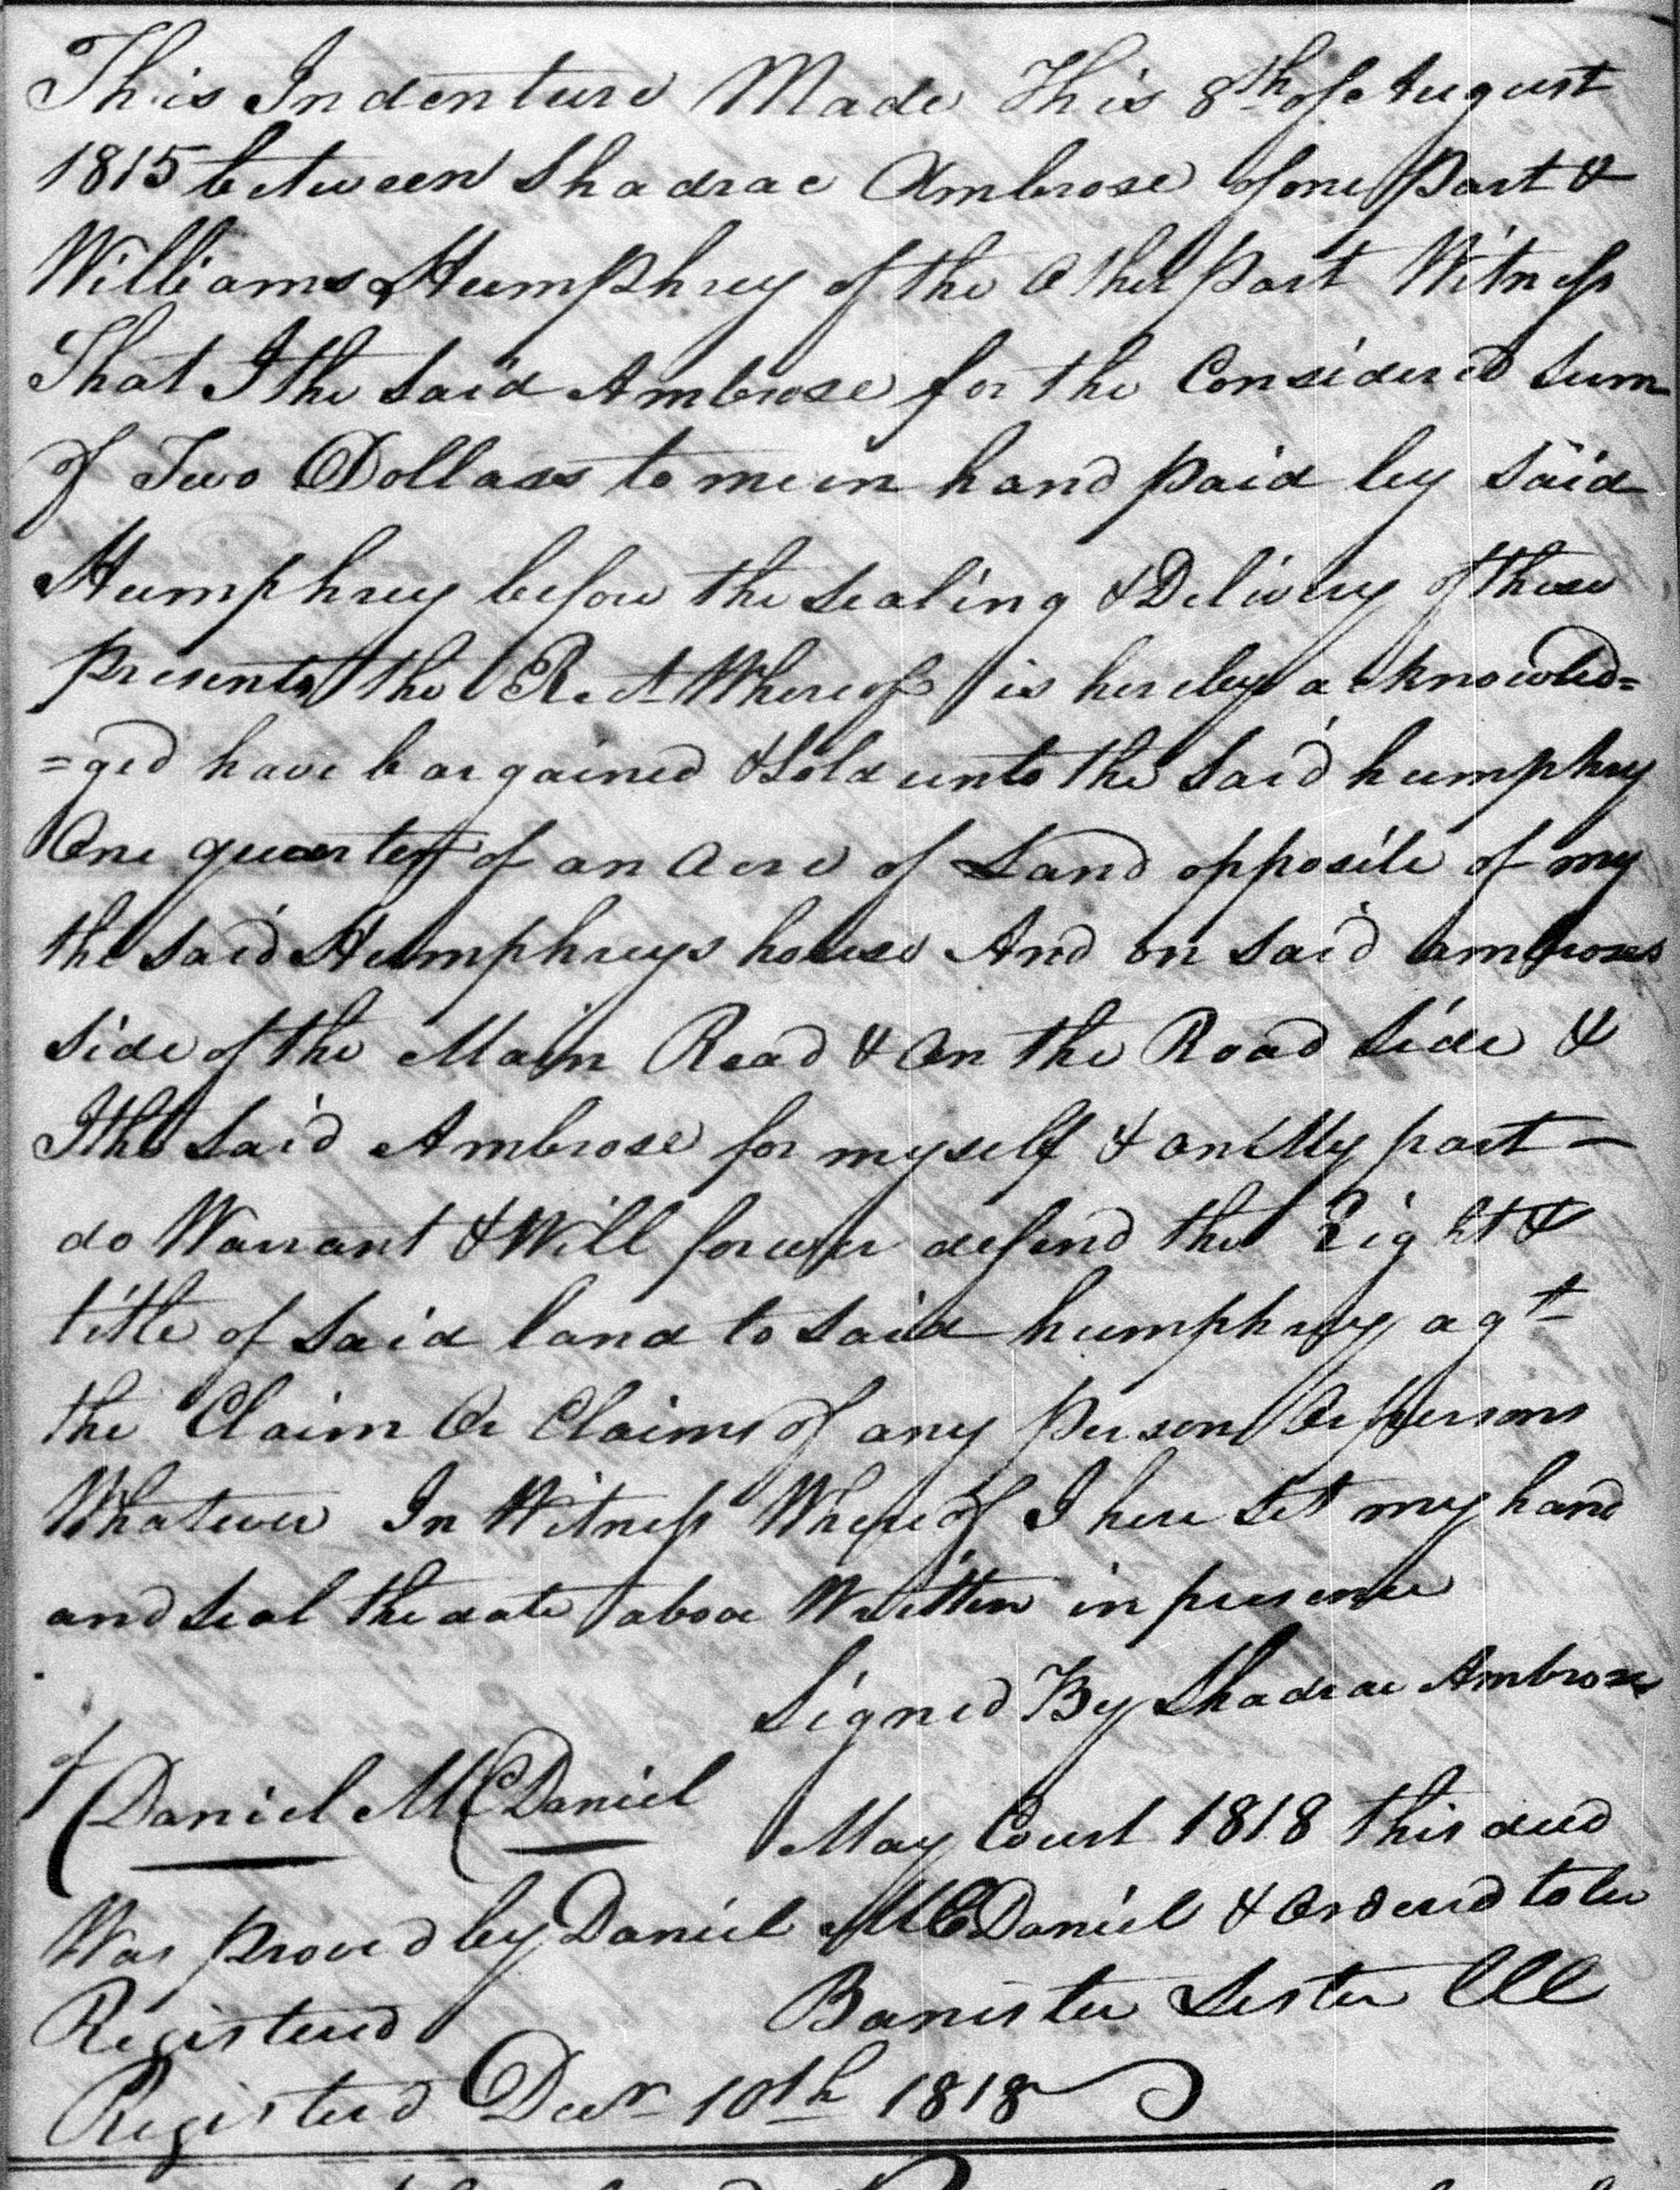 This Indenture Made This 8th of August
1815 between Shadrac Ambrose of one Part &
Williams Humphrey of the Other Part Witness
That I the Said Ambrose for the Considered Sum
of Two Dollars to me in hand paid by Said
Humphrey before the Sealing & Delivery of these
presents the Rect Whereof is hereby acknowled=
=ged have bargained & Sold unto the Said humphrey
One quarter of an Acre of Land opposite of my
the Said Humphreys house And on Said Ambroses
Side of the Main Road & On the Road Side &
I the Said Ambrose for myself & on My part —
do Warrant & Will forever defend the Right &
title of Said land to Said humphrey agt
the Claim Or Claims of any Person Or persons
Whatever In Witness Whereof I here Set my hand
and Seal the date above Written in presence
Signed By Shadrac Ambrose
of
Daniel McDaniel
May Court 1818 this deed
Was proved by Daniel McDaniel & Ordered to be
Registered Banister Lester Clk
Registered Decr 10th 1818